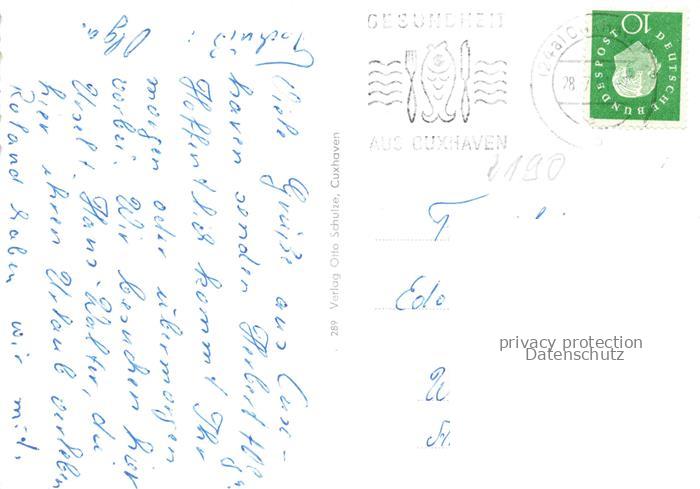 Viele Grüße aus Cux-
haven senden Herbert
Hoffentlich kommt Ihr
morgen oder übermorgen
vorbei. Wir besuchen hier
Hans-Walter, die
hier ihren Urlaub verleben
Roland haben wir mit.
Olga.
289 Verlag Otto Schulze, Cuxhaven
GESUNDHEIT
AUS CUXHAVEN
(24a) CUX
28.7
DEUTSCHE BUNDESPOST
10
2190
T
Ede
W
Fr.
privacy protection
Datenschutz